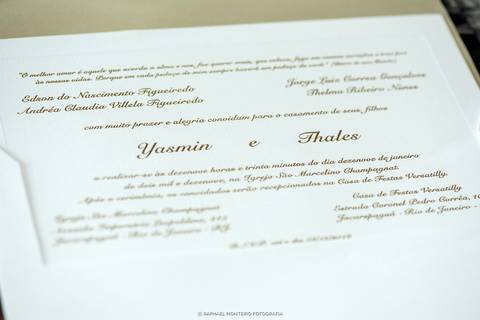 "O melhor amor é aquele que acorda a alma e nos faz querer mais, que coloca fogo em nossos corações e traz paz
às nossas vidas. Porque em cada pedaço de mim sempre haverá um pedaço de você."
Edson do Nascimento Figueiredo
Andréa Claudia Villela Figueiredo
Jorge Luiz Correa Gonçalves
Thelma Ribeiro Nunes
com muito prazer e alegria convidam para o casamento de seus filhos
Yasmin e Thales
a realizar-se às dezenove horas e trinta minutos do dia dezenove de janeiro
de dois mil e dezenove, na Igreja São Marcelino Champagnat.
Após a cerimônia, os convidados serão recepcionados na Casa de Festas Versatilly.
Igreja São Marcelino Champagnat
Jacarepaguá - Rio de Janeiro - RJ.
Casa de Festas Versatilly
Estrada Coronel Pedro Corrêa, 10
Jacarepaguá - Rio de Janeiro -
© RAPHAEL MONTEIRO FOTOGRAFIA